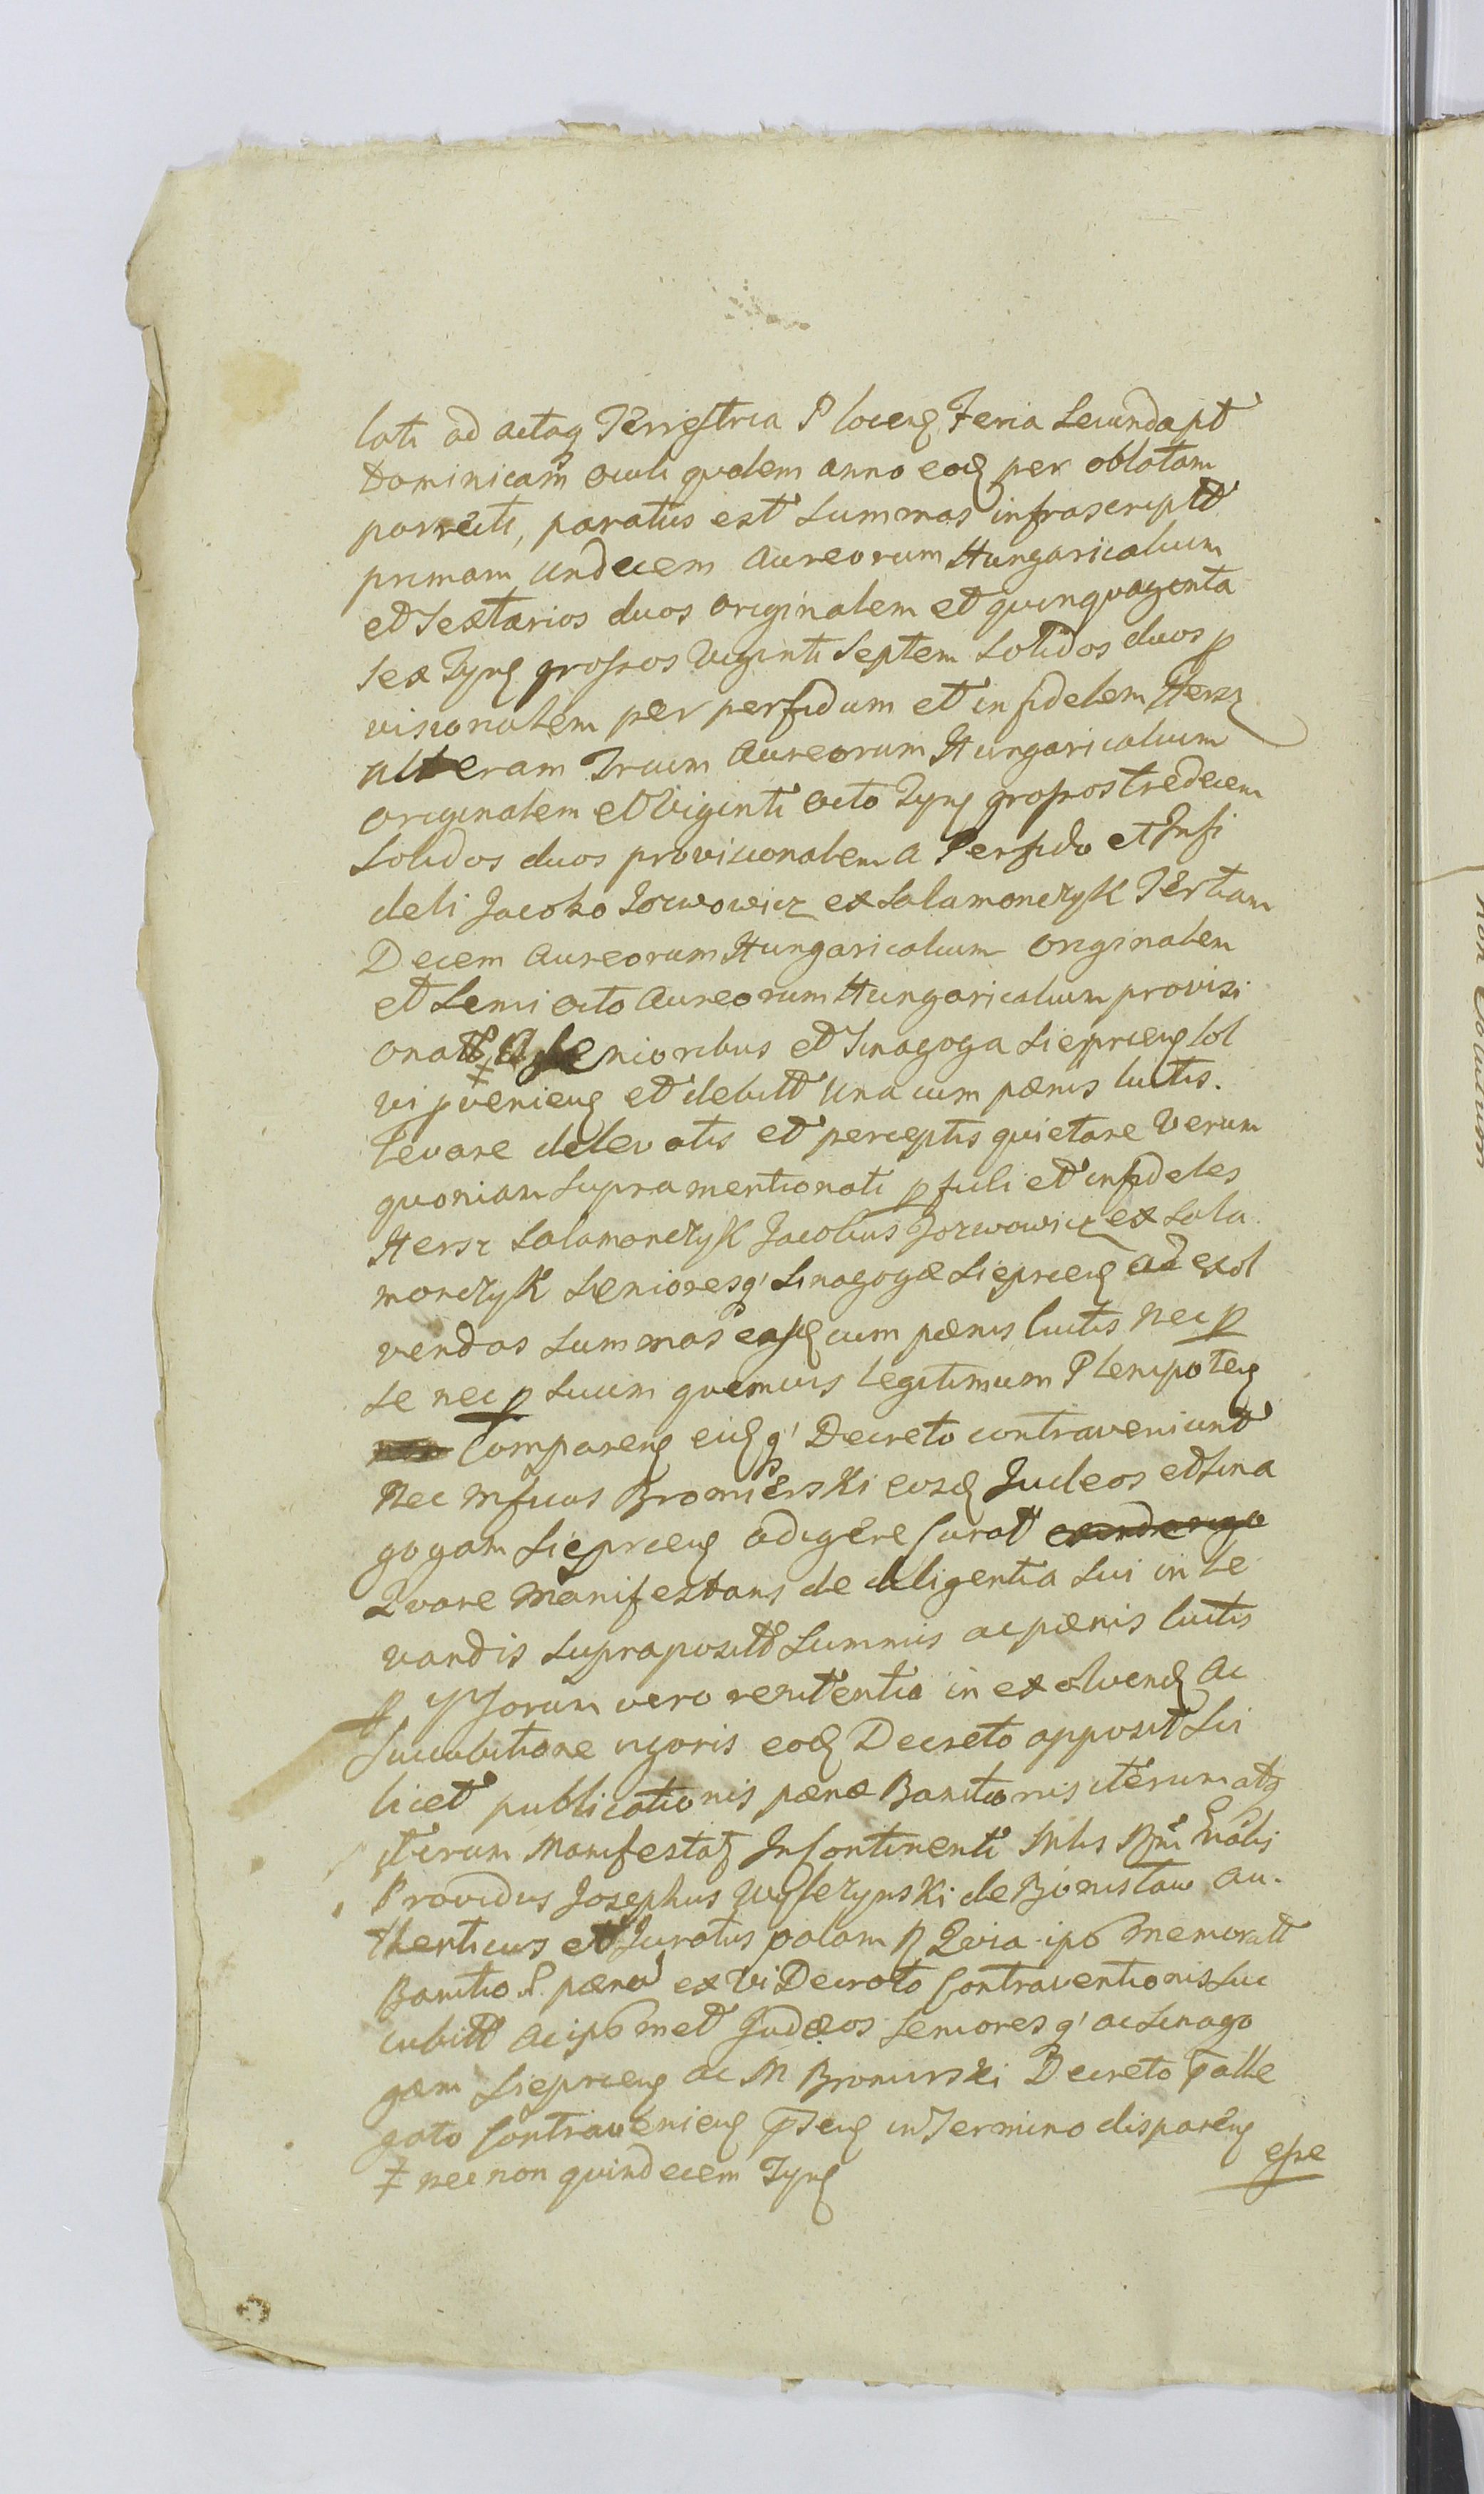 lati ad actaq Terrestria Plocenς Feria Secunda pt
Dominicam Oculi qvadem anno eodς per oblatam
porrecti, paratus est Summas infrascriptt
primam undecem Aureorum Hungaricalium
et Sextarios duos originalem et quinquaginta
sex Tynς grossos viginti Septem Solidos duos p
visionalem per perfidum et infidelem Hersz
alteram Trium Aureorum Hungaricalium
originalem et viginti octo Tynς grossos tredecem
Solidos duos provisionalem a Perfido et Infi
deli Jacobo Jozwowicz ex Salamonczyk Tertiam
Decem Aureorum Hungaricalium originalem
et Semi octo Aureorum Hungaricalium provisi
onatt, a Senioribus et Sinagoga Sieprcenς sol
vi pvenienς et debitt una cum pænis luitis.
levare delevatis et perceptis quietare Verum
quoniam Supramentionati pfidi et infideles
Hersz Salamonczyk Jacobus Jozwowicz ex Sala
monczyk Senioresq' Sinagogæ Sieprcenς ad exol
vendas Summas easdς cum pænis luitis nec p
se nec p Suum quemvis legitimum Plenipotenς
Comparenς eidς q' Decreto contraveniunt
Nec Mficus Bromierski eosdς Judeos et Sina
gogam Sieprcenς adigere Curat
Qvare Manifestans de diligentia Sui in le
vandis Supraposittt Summis ac pænis luitis
p Ipsorum vero renitentia in exolvendς ac
Succubitione rigoris eodς Decreto apposit Sci
licet publicationis pænæ Banitionis iterum atq
iterum Manifestatς Incontinenti Mtis Rni Gnalis
Providus Josephus Wysczynski de Bionislaw Au.
thenticus et Juratus palam p Qvia ipo memoratt
Banitio S. pæna ex Vi Decreto Contraventionis Suc
cubitt ac ipomet Judæos Senioresq' ac Sinago
gam Sieprcenς ac M Bromirski Decreto palle
gato Contravenienς ptenς in Termino disparenς
‡ nec non quindecem Tynς
esse